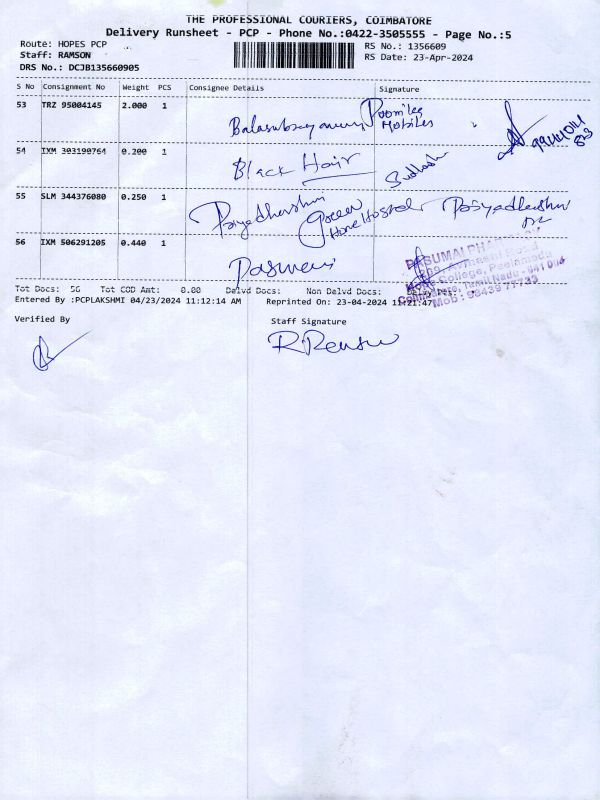 THE PROFESSIONAL COURIERS, COIMBATORE
Delivery Runsheet - PCP - Phone No.:0422-3505555 - Page No.:5
Route: HOPES PCP
RS No.: 1356609
Staff: RAMSON
RS Date: 23-Apr-2024
DRS No.: DCJB135660905
S No Consignment No Weight PCS Consignee Details Signature
53 TRZ 95004145 2.000 1
Mobiles
54 IXM 303190764 0.200 1 Black Hair
55 SLM 344376080 0.250 1 Priyadharshni Green Home Hostel
56 IXM 506291205 0.440 1
Tot Docs: 56 Tot COD Amt: 0.00 Delvd Docs: Non Delvd Docs:
Entered By :PCPLAKSHMI 04/23/2024 11:12:14 AM Reprinted On: 23-04-2024 11:21:47
Verified By
Staff Signature